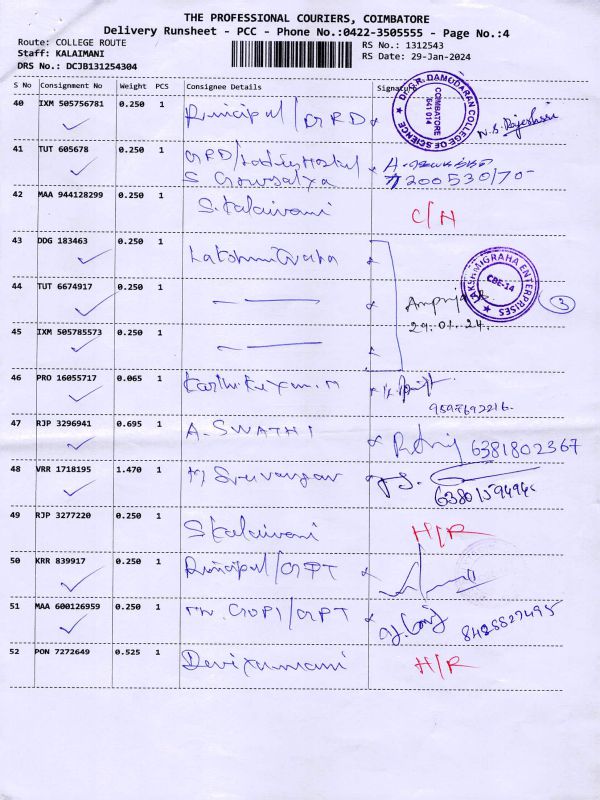 THE PROFESSIONAL COURIERS, COIMBATORE
Delivery Runsheet - PCC - Phone No.:0422-3505555 - Page No.:4
Route: COLLEGE ROUTE
Staff: KALAIMANI
DRS No.: DCJB131254304
RS No.: 1312543
RS Date: 29-Jan-2024
S No Consignment No Weight PCS Consignee Details Signature
40 IXM 505756781 0.250 1 Principal / GRD
DR. G.R. DAMODARAN COLLEGE OF SCIENCE
COIMBATORE
641 014
N.S. Rajeshsri
41 TUT 605678 0.250 1 GRD/Ladies Hostel
S
7200530170
42 MAA 944128299 0.250 1 S. Kalaivani C/N
43 DDG 183463 0.250 1 Lakshmi Graha
44 TUT 6674917 0.250 1
GRAHA ENTERPRISES
CBE-14
29.01.24
3
45 IXM 505785573 0.250 1
46 PRO 16055717 0.065 1 Karthikeyan.M
9597692216
47 RJP 3296941 0.695 1 A. SWATHI 6381802367
48 VRR 1718195 1.470 1
49 RJP 3277220 0.250 1 S Kalaivani H/R
50 KRR 839917 0.250 1 Principal / GPT
51 MAA 600126959 0.250 1 GOPI / GPT
8428827495
52 PON 7272649 0.525 1 H/R